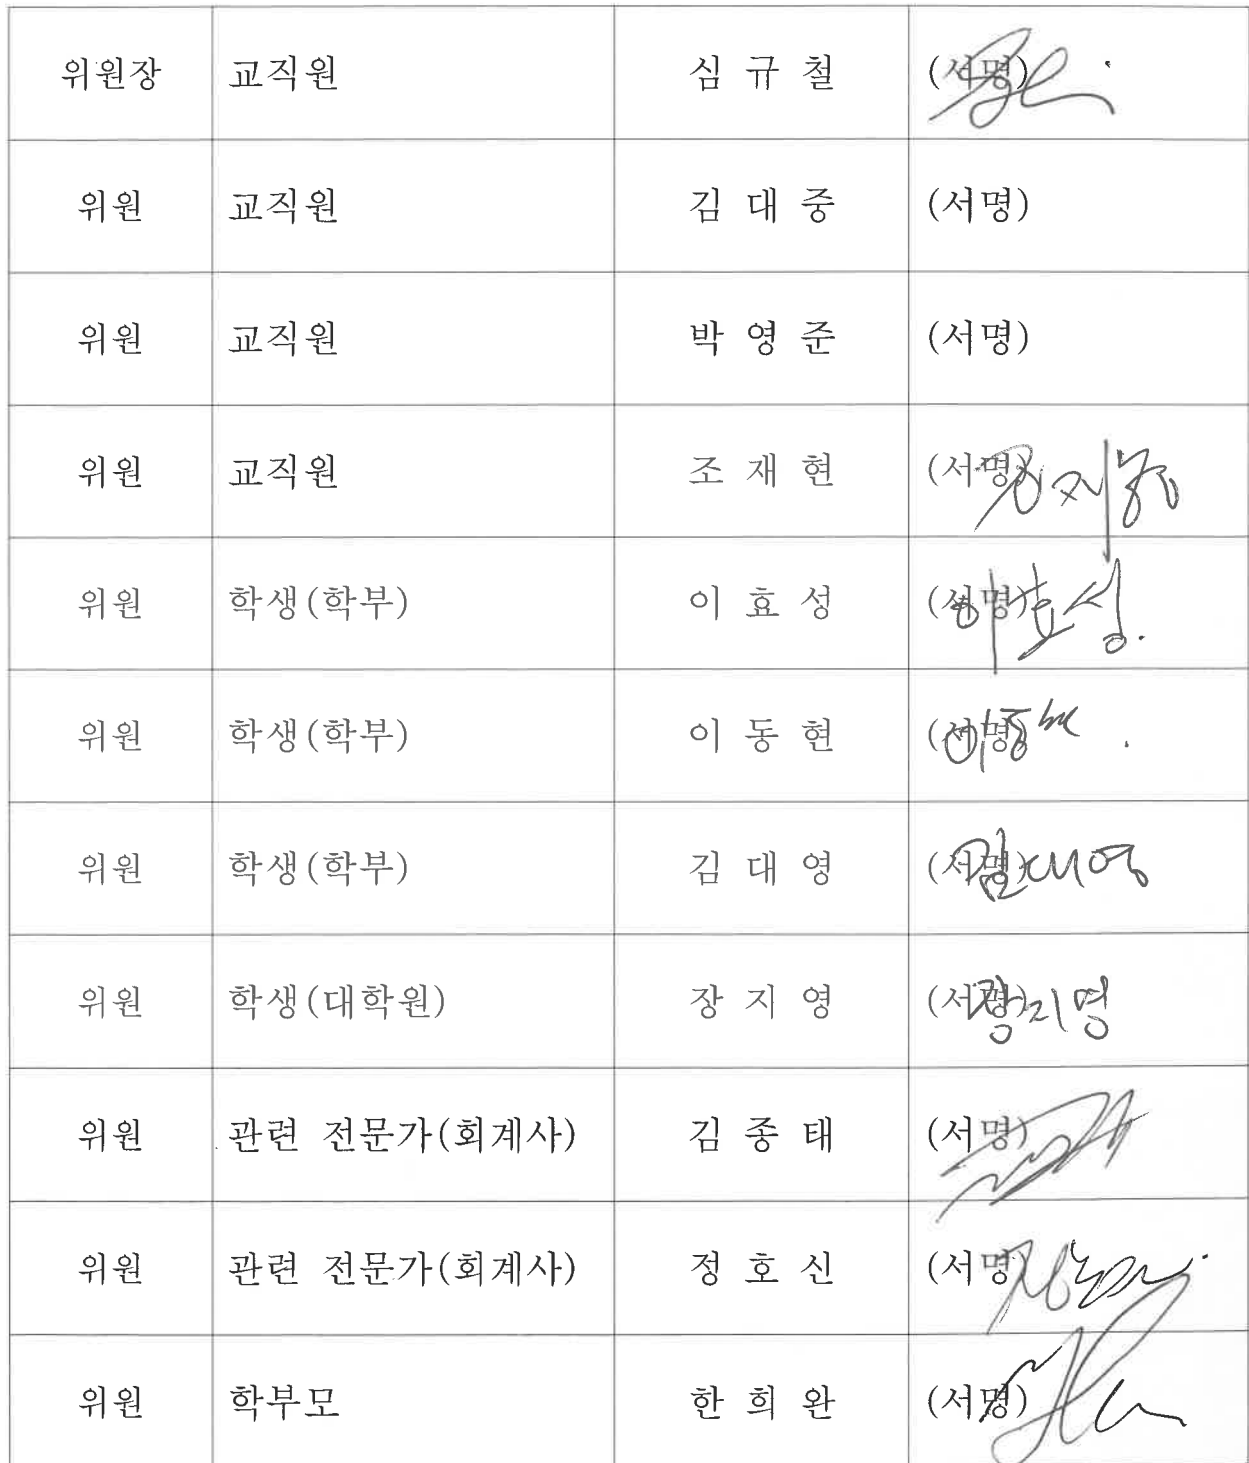 위원장 교직원 심 규 철 (서명)
위원 교직원 김 대 중 (서명)
위원 교직원 박 영 준 (서명)
위원 교직원 조 재 현 (서명)
위원 학생(학부) 이 효 성 (서명) 이효성.
위원 학생(학부) 이 동 현 (서명)
위원 학생(학부) 김 대 영 (서명) 김대영
위원 학생(대학원) 장 지 영 (서명) 장지영
위원 관련 전문가(회계사) 김 종 태 (서명)
위원 관련 전문가(회계사) 정 호 신 (서명)
위원 학부모 한 희 완 (서명)